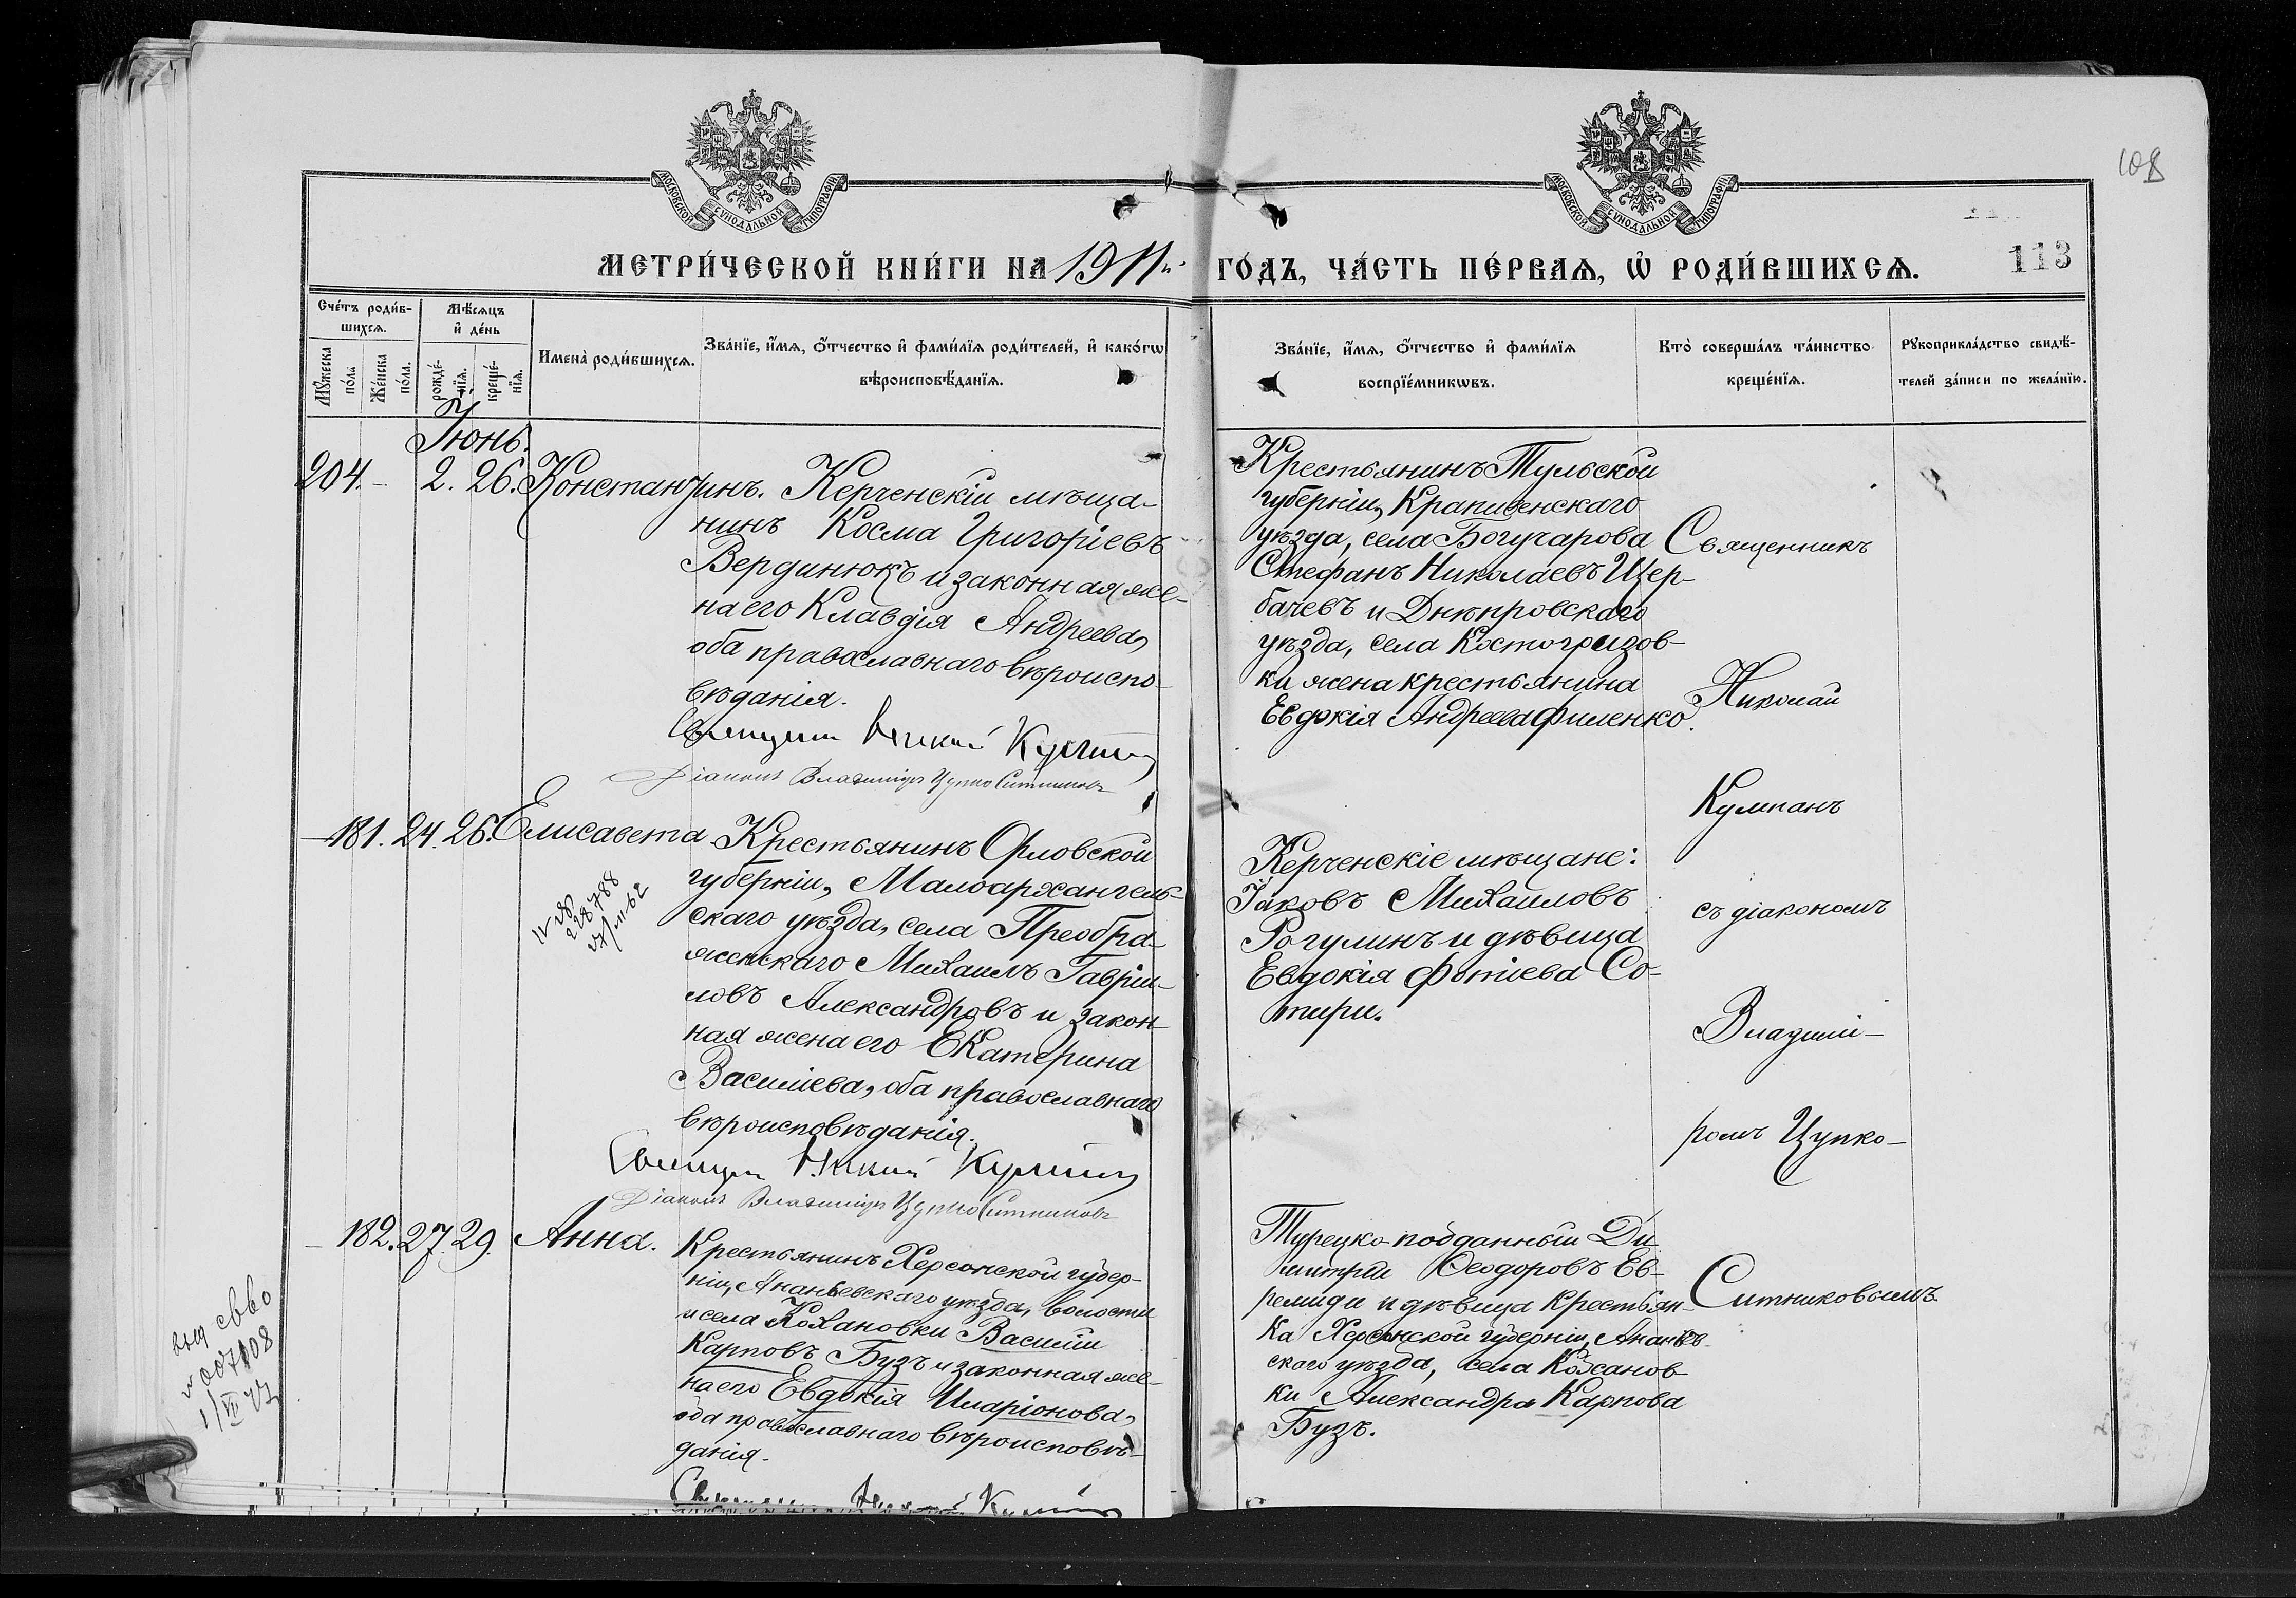 108
113
МОСКОВСКОЙ СѴНОДАЛЬНОЙ ТИПОГРАФІИ
МОСКОВСКОЙ СѴНОДАЛЬНОЙ ТИПОГРАФІИ
МЕТРИ́ЧЕСКОЙ КНИ́ГИ НА 1911 ГО́ДЪ, ЧА́СТЬ ПЕ́РВАѦ, Ѡ҆ РОДИ́ВШИХСѦ.
Сче́тъ роди́в-
шихсѧ.
Мѣ́сѧцъ
и҆ де́нь
Мꙋ́жеска
по́ла
Же́нска
по́ла.
рожде́-
нїѧ.
креще́-
нїѧ.
Имена̀ роди́вшихсѧ.
Зва́нїе, и҆́мѧ, ѻ҆́тчество и҆ фами́лїѧ роди́телей, и҆ како́гѡ
вѣроисповѣ́данїѧ.
Зва́нїе, и҆́мѧ, ѻ҆́тчество и҆ фами́лїѧ
воспрїе́мникѡвъ.
Кто̀ соверша́лъ та́инство
креще́нїѧ.
Рꙋкоприкла́дство свидѣ́-
телей за́писи по жела́нїю.
Іюнь.
204. - 2. 26. Константинъ. Керченскій мѣща-
нинъ Косма Григоріевъ
Вердинюкъ и законная же-
на его Клавдія Андреева,
оба православнаго вѣроиспо-
вѣданія.
Священникъ Николай Кулпанъ
Діаконъ Владиміръ Цупко Ситниковъ
Крестьянинъ Тульской
губерніи, Крапивенскаго
уѣзда, села Богучарова
Стефанъ Николаевъ Щер-
бачевъ и Днѣпровскаго
уѣзда, села Костогрызов-
ки жена крестьянина
Евдокія Андреева Филенко.
Священникъ
Николай
Кулпанъ
съ діакономъ
Владимі-
ромъ Цупко-
Ситниковымъ.
- 181. 24. 26. Елисавета. Крестьянинъ Орловской
губерніи, Малоархангель-
скаго уѣзда, села Преобра-
женскаго Михаилъ Гаврии-
ловъ Александровъ и закон-
ная жена его Екатерина
Василіева, оба православнаго
вѣроисповѣданія.
Священникъ Николай Кулпанъ
Діаконъ Владиміръ Цупко Ситниковъ
228788
Керченскіе мѣщане:
Іаковъ Михаиловъ
Рогулинъ и дѣвица
Евдокія Фотіева Со-
тири.
- 182. 27. 29. Анна. Крестьянинъ Херсонской губер-
ніи, Ананьевскаго уѣзда, волости
и села Кохановки Василій
Карповъ Бузъ и законная же-
на его Евдокія Иларіонова,
оба православнаго вѣроисповѣ-
данія.
Турецко-подданный Ди-
митрій Ѳеодоровъ Ев-
ремиди и дѣвица крестьян-
ка Херсонской губерніи, Ананьев-
скаго уѣзда, села Коханов-
ки Александра Карпова
Бузъ.